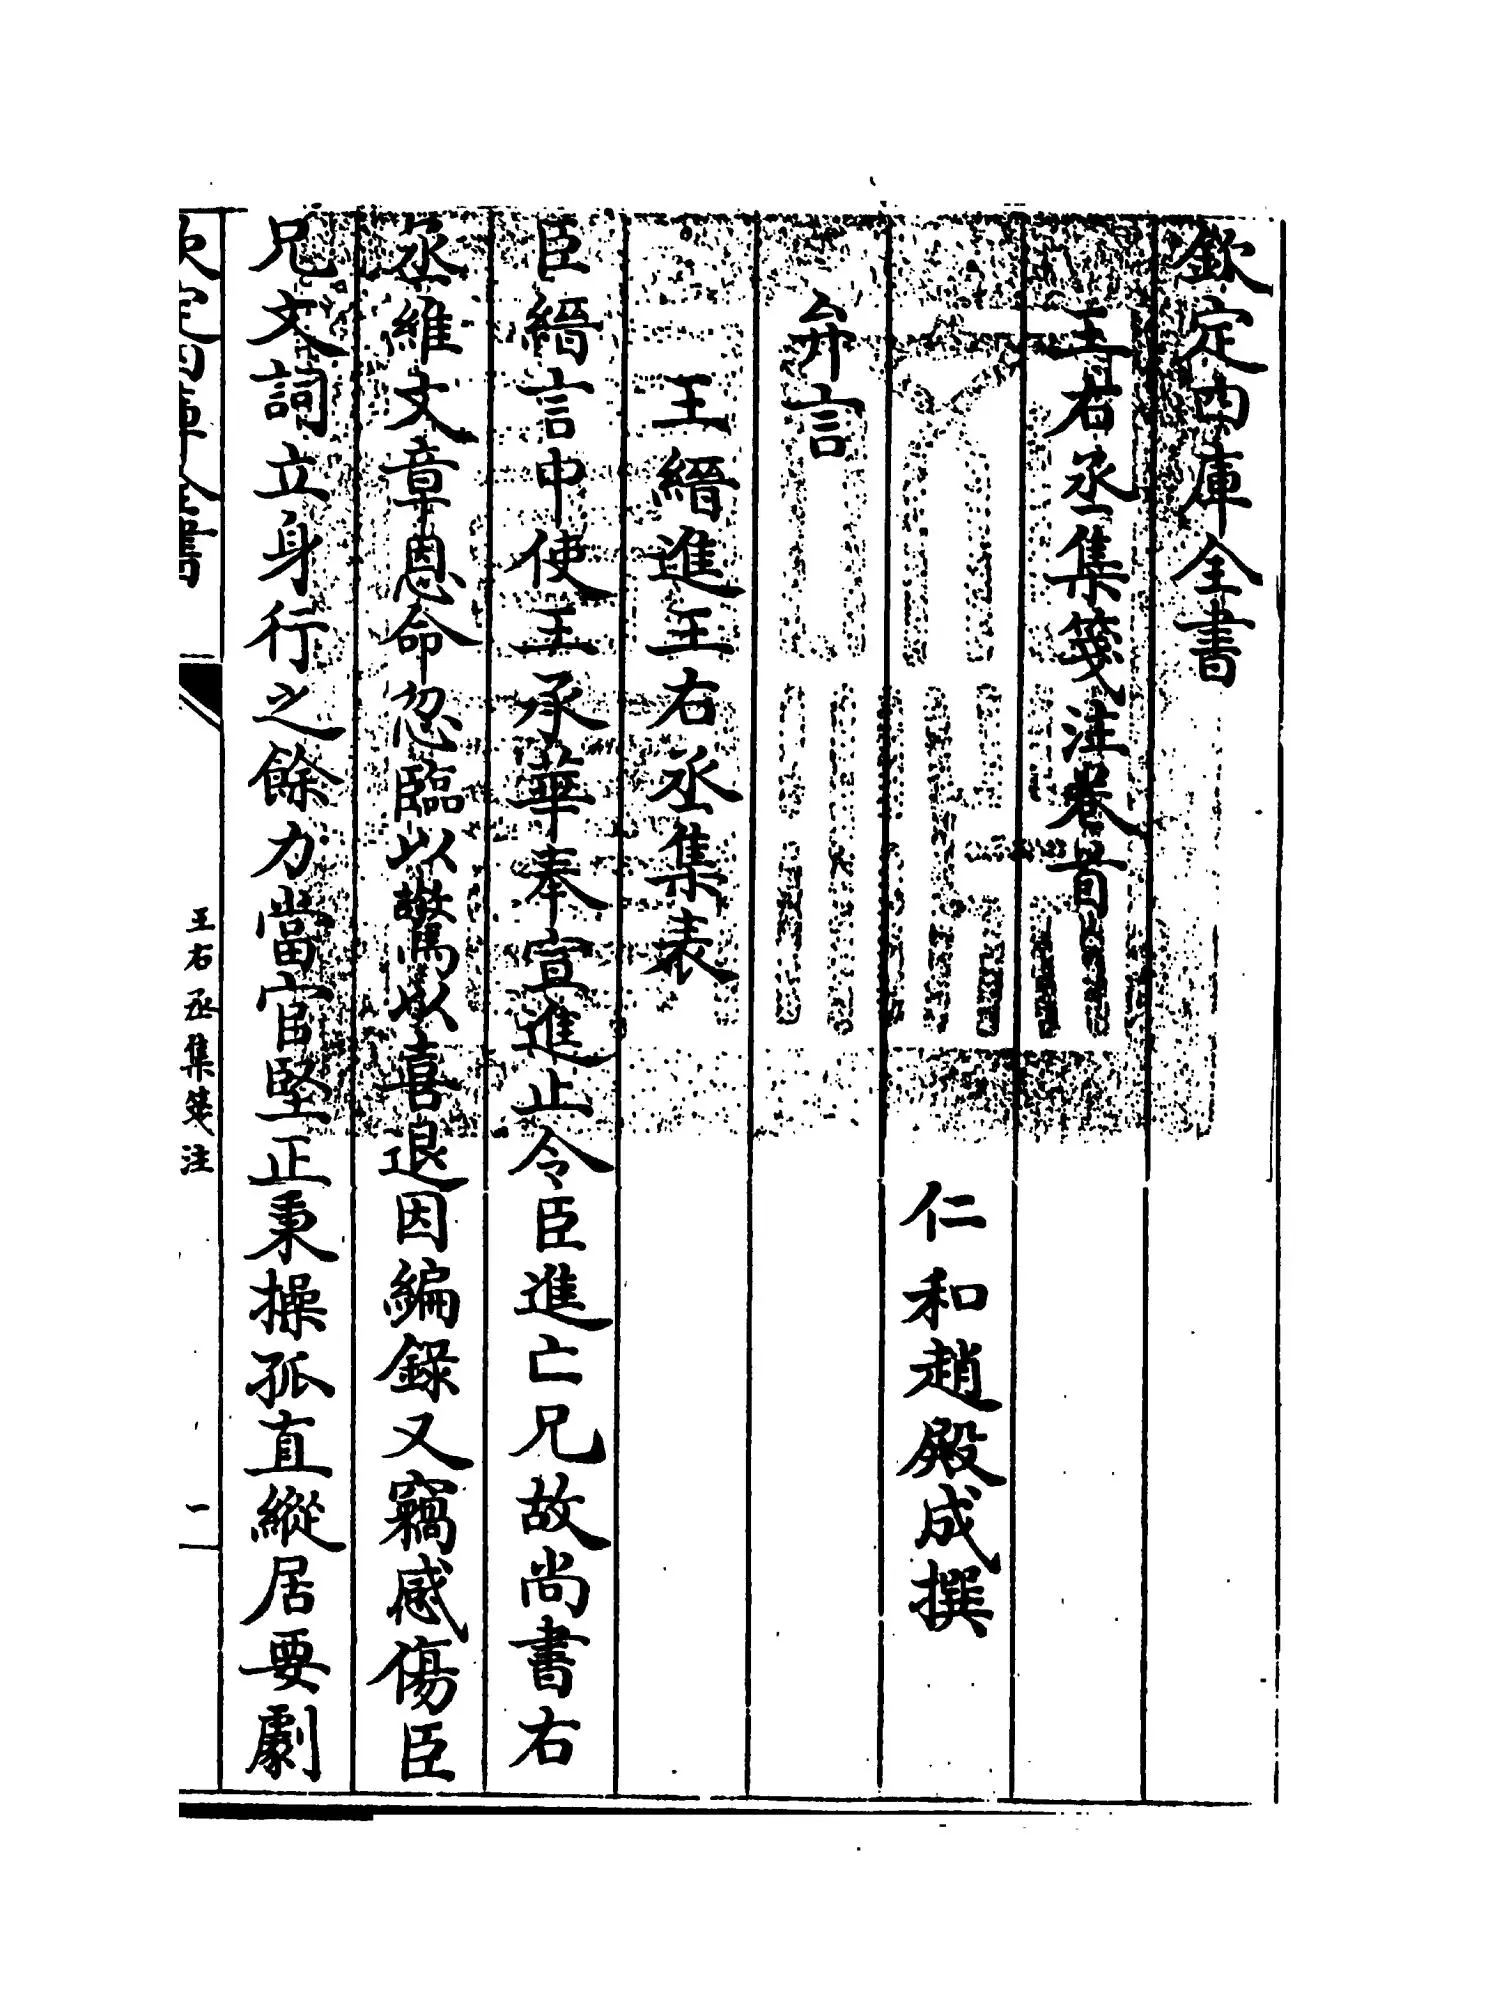 欽定四庫全書
王右丞集箋注卷首
仁和趙殿成撰
弁言
王縉進王右丞集表
臣縉言中使王承華奉宣進止令臣進亡兄故尚書右
丞維文章恩命忽臨以驚以喜退因編錄又竊感傷臣
兄文詞立身行之餘力當官堅正秉操孤直縱居要劇
欽定四庫全書
王右丞集箋注
一